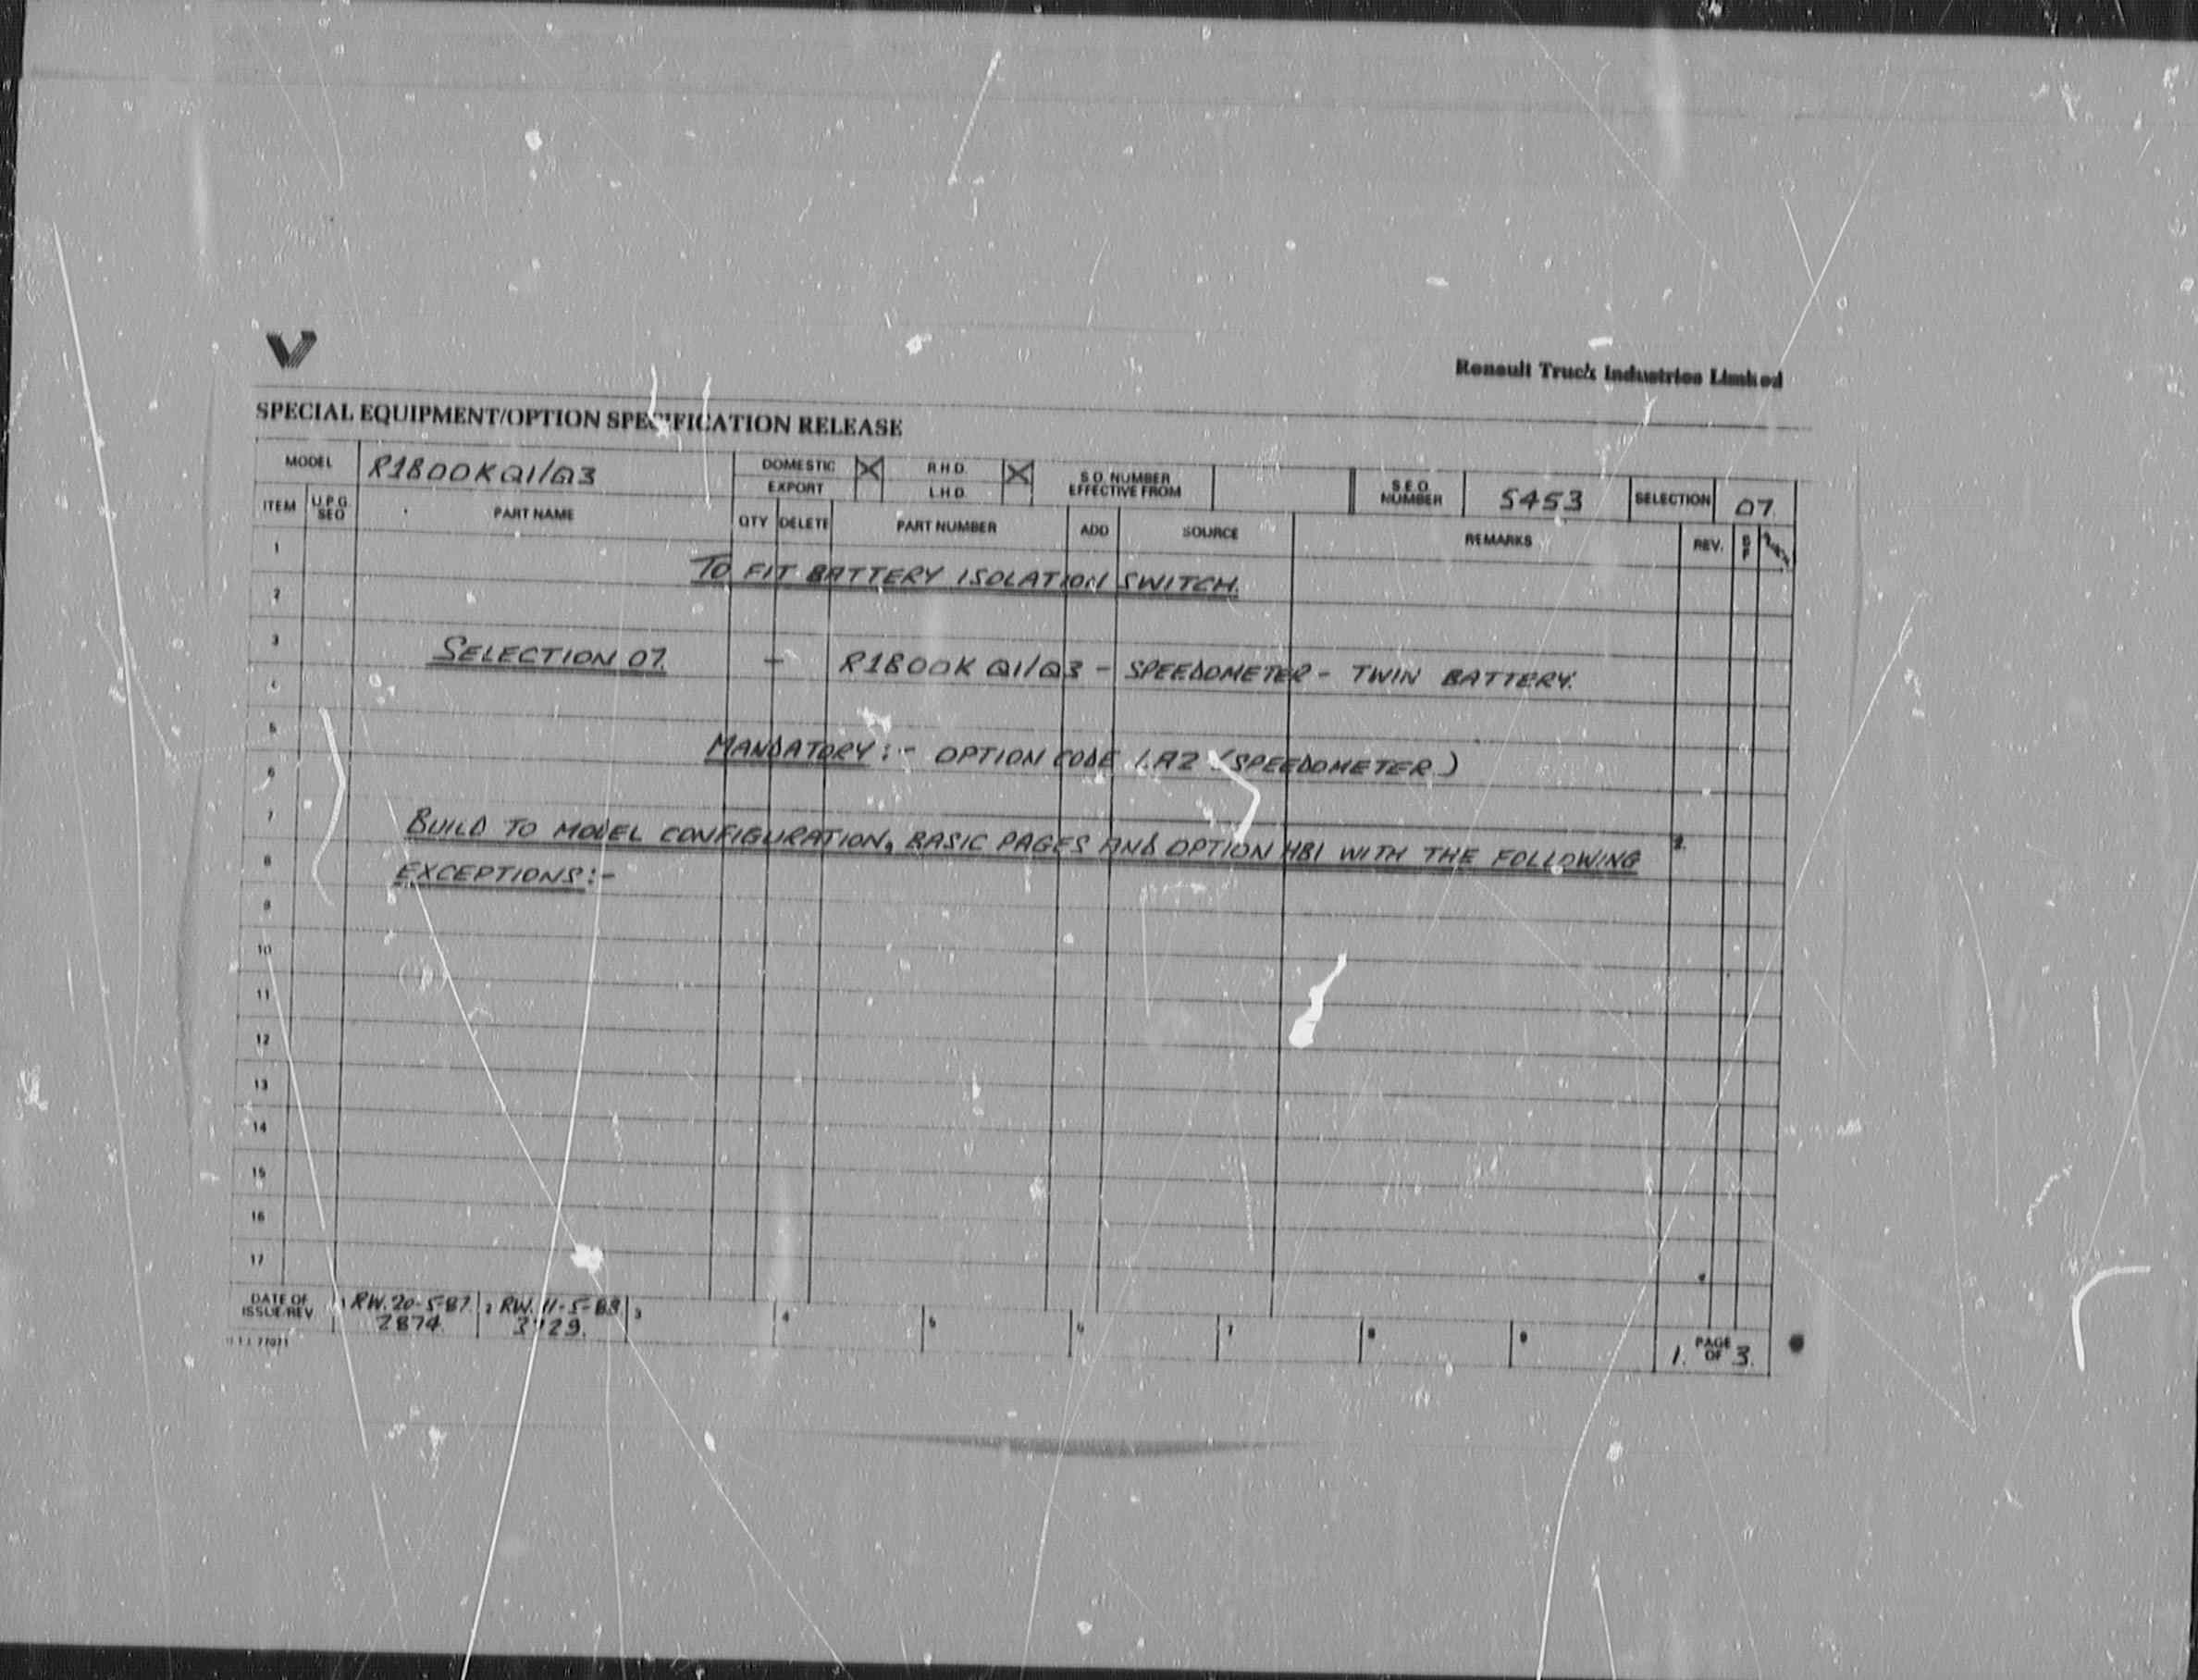 Renault Truck Industries Limited
SPECIAL EQUIPMENT/OPTION SPECIFICATION RELEASE
MODEL R1800KQ1/Q3 DOMESTIC X R.H.D. X S.O. NUMBER EFFECTIVE FROM S.E.O. NUMBER 5453 SELECTION 07.
EXPORT L.H.D.
ITEM U.P.G. SEQ PART NAME QTY DELETE PART NUMBER ADD SOURCE REMARKS REV.
1
TO FIT BATTERY ISOLATION SWITCH.
2
3
SELECTION 07. - R1800K Q1/Q3 - SPEEDOMETER - TWIN BATTERY.
4
5
MANDATORY :- OPTION CODE 1.A2 (SPEEDOMETER)
6
7
BUILD TO MODEL CONFIGURATION, BASIC PAGES AND OPTION HB1 WITH THE FOLLOWING 2.
8
EXCEPTIONS:-
9
10
11
12
13
14
15
16
17
DATE OF ISSUE/REV 1 RW. 20-5-87. 2 RW. 11-5-88 3 4 5 6 7 8 9 1. PAGE OF 3.
2874.